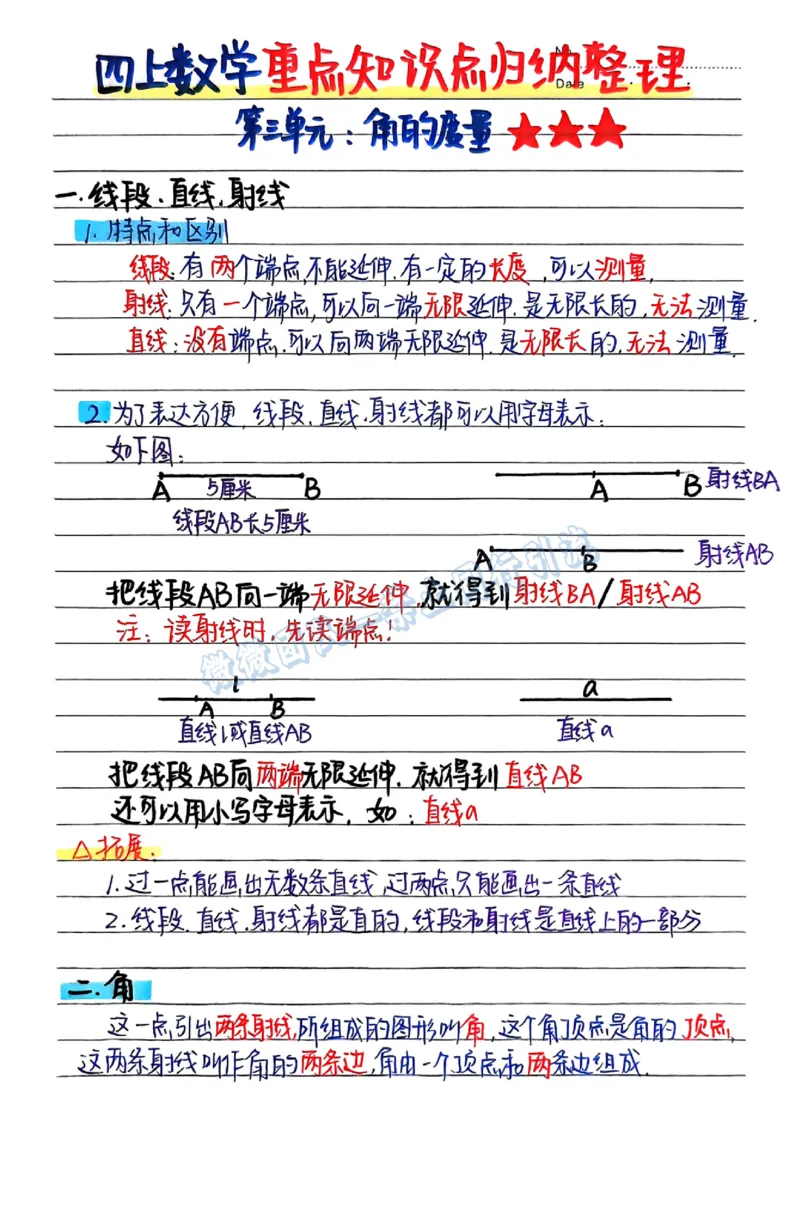 四上数学重点知识点归纳整理
No
Date
第三单元：角的度量★★★
一.线段.直线.射线
1.特点和区别
线段:有两个端点,不能延伸.有一定的长度,可以测量,
射线:只有一个端点,可以向一端无限延伸.是无限长的,无法测量.
直线:没有端点.可以向两端无限延伸.是无限长的,无法测量.
2.为了表达方便,线段、直线.射线都可以用字母表示:
如下图:
A 5厘米 B
A B 射线BA
线段AB长5厘米
A B 射线AB
把线段AB向一端无限延伸,就得到射线BA/射线AB
注:读射线时,先读端点!
l
A B
a
直线l或直线AB
直线a
把线段AB向两端无限延伸.就得到直线AB
还可以用小写字母表示,如:直线a
△拓展:
1.过一点能画出无数条直线,过两点只能画出一条直线
2.线段.直线.射线都是直的,线段和射线是直线上的一部分
二.角
这一点引出两条射线,所组成的图形叫角,这个角顶点是角的顶点,
这两条射线叫作角的两条边,角由一个顶点和两条边组成.